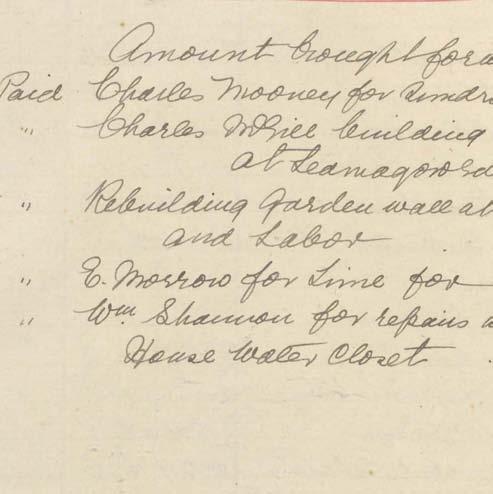 Amount brought forw
Paid Charles Mooney for Sundri
" Charles McGill building
at Leamagowra
" Rebuilding garden wall at
and Labor
" E. Morrow for Lime for
" Wm Shannon for repairs
House Water Closet